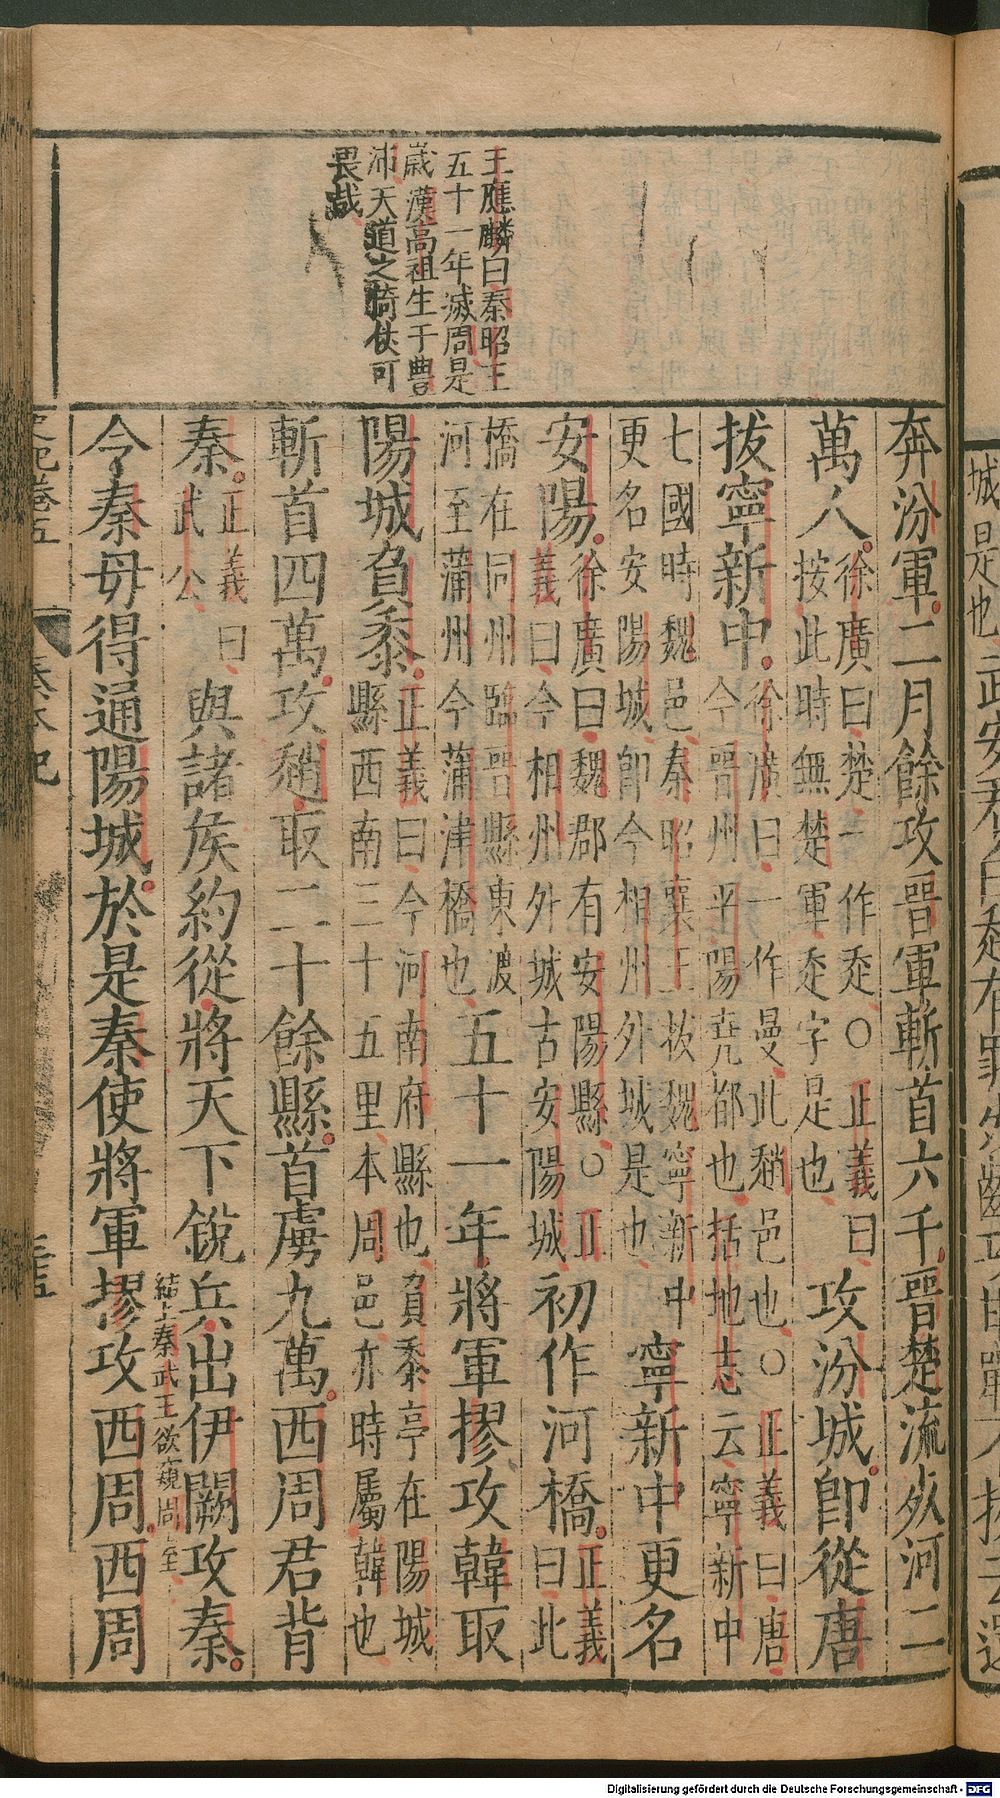 王應麟曰秦昭王
五十一年滅周是
歲漢高祖生于豐
沛天道之倚伏可
畏哉
奔汾軍二月餘攻晉軍斬首六千晉楚流死河二
萬人徐廣曰楚一作走○正義曰
按此時無楚軍走字是也攻汾城即從唐
拔寧新中徐廣曰一作曼此趙邑也○正義曰唐
今晉州平陽堯都也括地志云寧新中
七國時魏邑秦昭襄王拔魏寧新中
更名安陽城即今相州外城是也寧新中更名
安陽徐廣曰魏郡有安陽縣○正
義曰今相州外城古安陽城初作河橋正義
曰此
橋在同州臨晉縣東渡
河至蒲州今蒲津橋也五十一年將軍摎攻韓取
陽城負黍正義曰今河南府縣也負黍亭在陽城
縣西南三十五里本周邑亦時屬韓也
斬首四萬攻趙取二十餘縣首虜九萬西周君背
秦正義曰
武公與諸侯約從將天下銳兵出伊闕攻秦
結上秦武王欲窺周室
令秦毋得通陽城於是秦使將軍摎攻西周西周
史記卷五
秦本紀
三十五
城是也武安君白起有罪
Digitalisierung gefördert durch die Deutsche Forschungsgemeinschaft - DFG